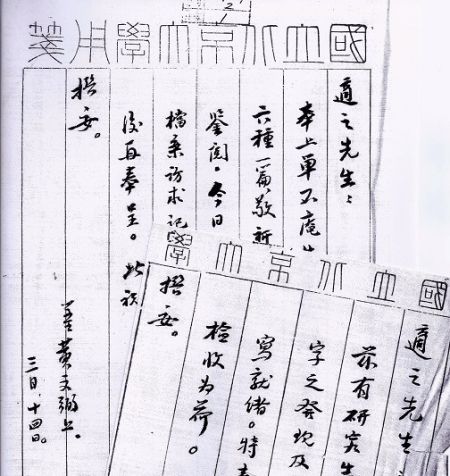 國立北京大學用箋
適之先生：
奉上單不庵
六種一篇敬祈
鑒閱。今日
檔案訪求記
後再奉呈。此祝
撰安。
黃文弼上。
三月十四日。
國立北京大學
適之先生
茲有研究生
字之發現及
寫就緒。特
檢收為荷。
撰安。